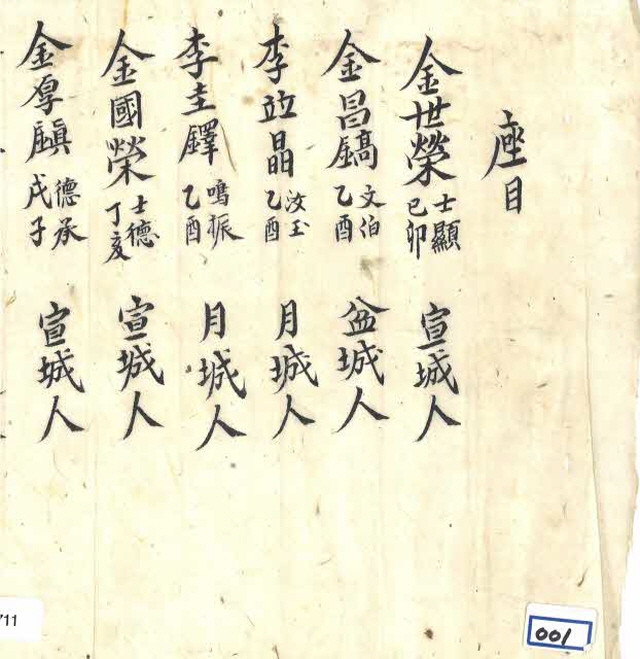 座目
金世榮 士顯 己卯 宣城人
金昌鎬 文伯 乙酉 盆城人
李竝晶 汝玉 乙酉 月城人
李圭鐸 鳴振 乙酉 月城人
金國榮 士德 丁亥 宣城人
金厚鎭 德承 戊子 宣城人
711
001